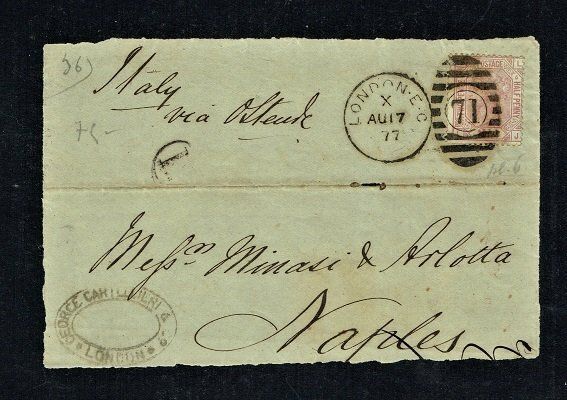 Italy
via Ostende
LONDON·E.C
X
AU17
77
71
POSTAGE
HALFPENNY
Messrs Minasi & Arlotta
Naples
GEORGE
& Co
LONDON